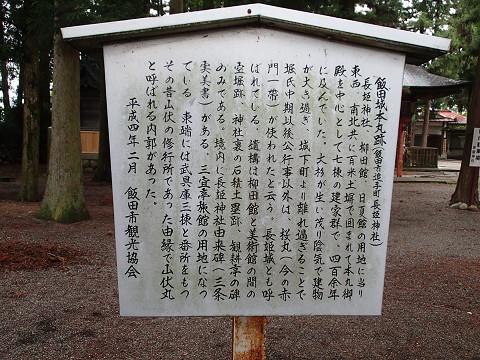 飯田城本丸跡(飯田市追手町長姫神社)
長姫神社、柳田館、日夏館の用地に当り
東西、南北共に両土塀で囲まれて本丸御
殿を中心として七棟の建家群で、四百余年
に及んでいた。大杉が生い茂り陰気で建物
が大き過ぎ、城下町より離れ過ぎることで
堀氏中期以後公行事以外は、桜丸(今の赤
門一帯)が使われたと云う。長姫城とも呼
ばれている。遺構は柳田館と美術館の間の
空堀跡、神社裏の石積土塁跡、観耕亭の碑
のみである。境内に長姫神社由来碑(三条
実美書)がある。三宜亭旅館の用地になっ
ている東端には武具庫三棟と番所をもつ
その昔山伏の修行所であった由縁で山伏丸
と呼ばれる内郭があった。
平成四年二月 飯田市観光協会